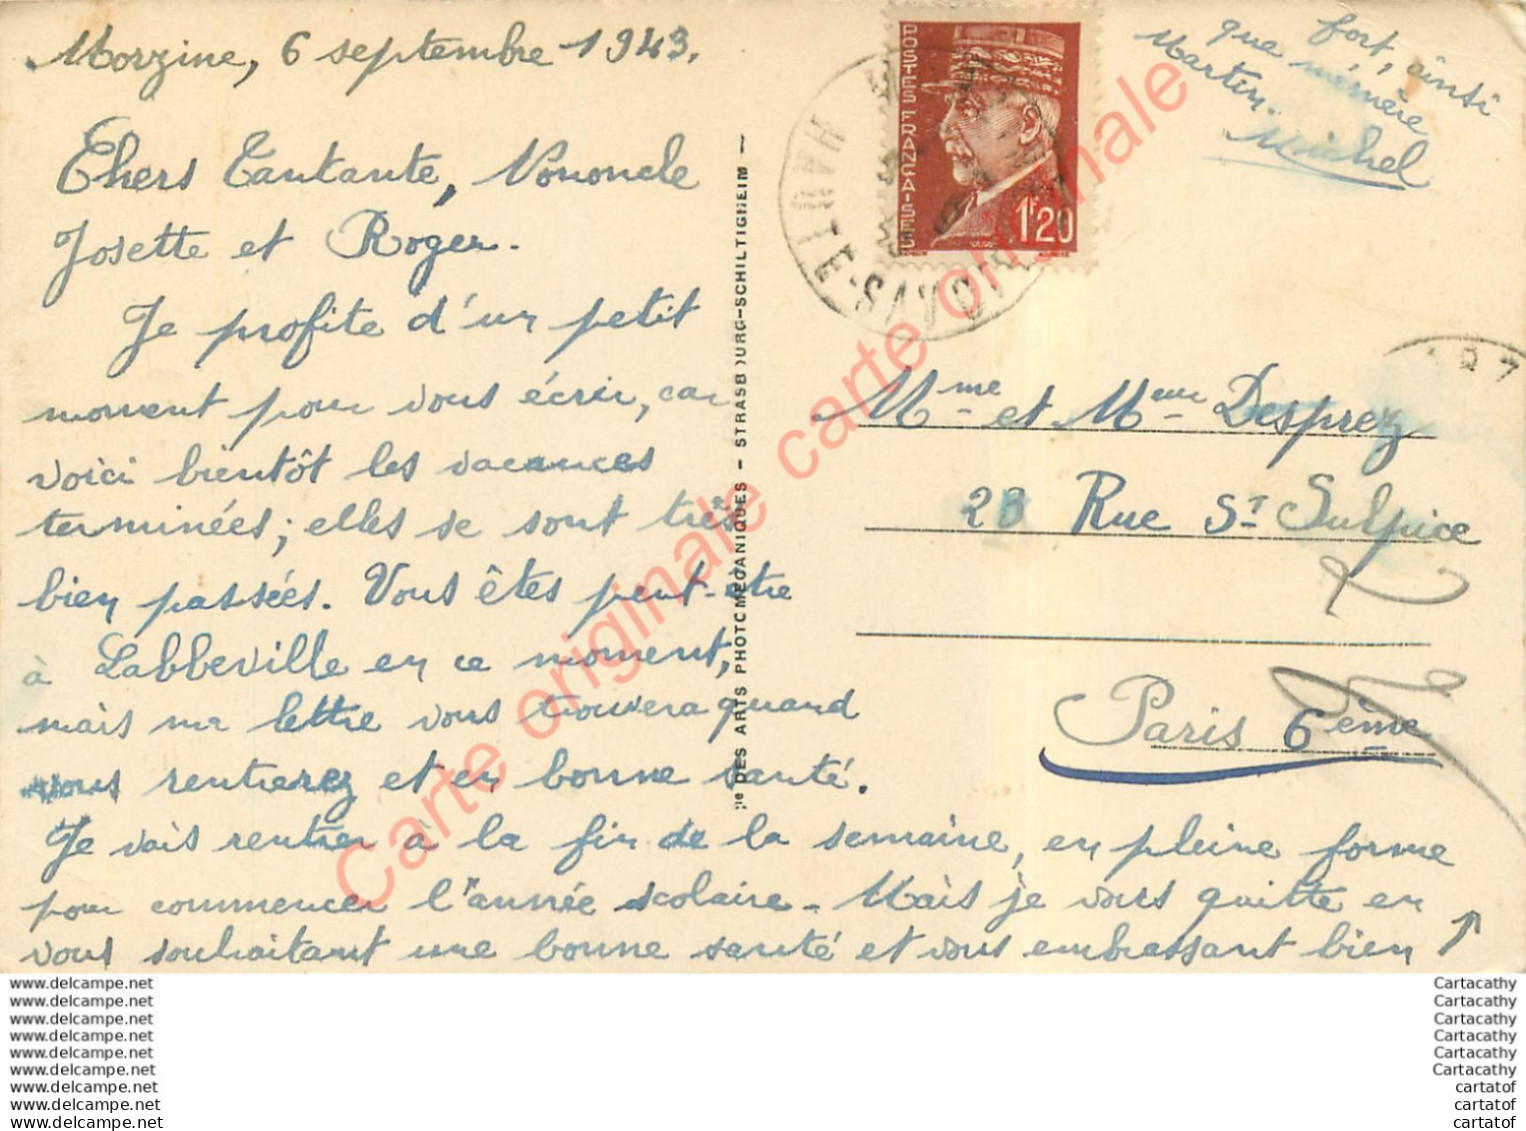 Morzine, 6 septembre 1943.
Chers Tantante, Nononcle
Josette et Roger.
Je profite d'un petit
moment pour vous écrire, car
voici bientôt les vacances
terminées; elles se sont très
bien passées. Vous êtes peut-être
à Labbeville en ce moment,
mais ma lettre vous trouvera quand
vous rentrerez et en bonne santé.
Je vais rentrer à la fin de la semaine, en pleine forme
pour commencer l'année scolaire. Mais je vous quitte en
vous souhaitant une bonne santé et vous embrassant bien
fort, ainsi
que mémère
Martin.
Michel
POSTES FRANÇAISES
1F20
HAUTE-SAVOIE
Mme et Meur Desprez
23 Rue St Sulpice
Paris 6ème
DES ARTS PHOTOMECANIQUES - STRASBOURG-SCHILTIGHEIM -
Carte originale carte originale
www.delcampe.net
www.delcampe.net
www.delcampe.net
www.delcampe.net
www.delcampe.net
www.delcampe.net
www.delcampe.net
www.delcampe.net
www.delcampe.net
Cartacathy
Cartacathy
Cartacathy
Cartacathy
Cartacathy
Cartacathy
cartatof
cartatof
cartatof